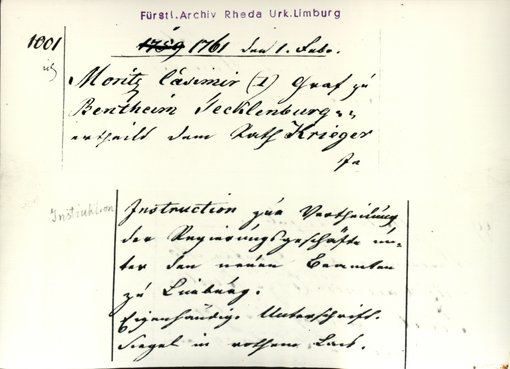 Fürstl. Archiv Rheda Urk. Limburg
1001
1759 1761 den 1. Febr.
Moritz Casimir (I) Graf zu
Bentheim Tecklenburg
ertheilt dem Rath Krieger
Instruktion
Instruction zur Vertheilung
der Regierungsgeschäfte un-
ter den neuen Beamten
zu Limburg.
Eigenhändige Unterschrift.
Siegel in rothem Lack.